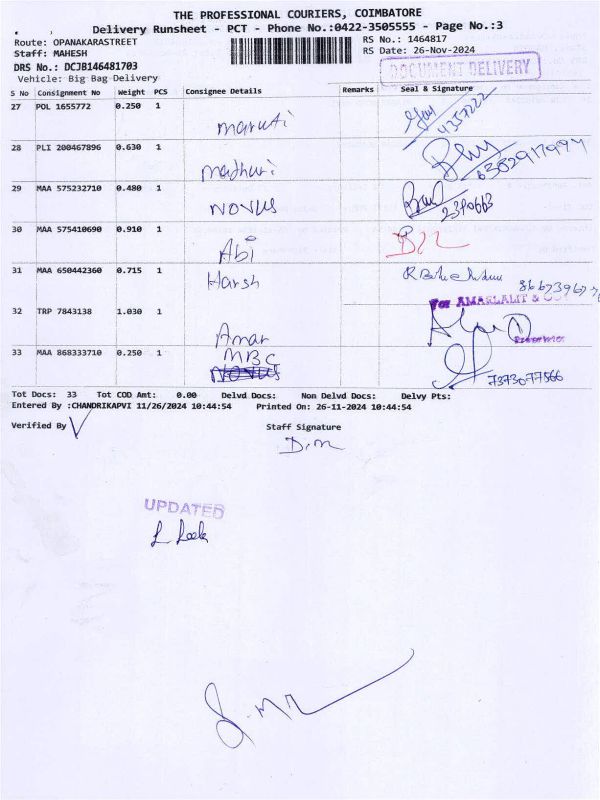 THE PROFESSIONAL COURIERS, COIMBATORE
Delivery Runsheet - PCT - Phone No.:0422-3505555 - Page No.:3
Route: OPANAKARASTREET
RS No.: 1464817
Staff: MAHESH
RS Date: 26-Nov-2024
DRS No.: DCJB146481703
DOCUMENT DELIVERY
Vehicle: Big Bag Delivery
S No Consignment No Weight PCS Consignee Details Remarks Seal & Signature
27 POL 1655772 0.250 1 maruti
4357222
28 PLI 200467896 0.630 1 madhuri
6302917994
29 MAA 575232710 0.480 1 NOVUS
2390663
30 MAA 575410690 0.910 1 Abi
31 MAA 650442360 0.715 1 Harsh
For AMARLALIT &
32 TRP 7843138 1.030 1 Amar
33 MAA 868333710 0.250 1 MBC
NOVUS
7373077566
Tot Docs: 33 Tot COD Amt: 0.00 Delvd Docs: Non Delvd Docs: Delvy Pts:
Entered By :CHANDRIKAPVI 11/26/2024 10:44:54 Printed On: 26-11-2024 10:44:54
Verified By Staff Signature
D.m
UPDATED